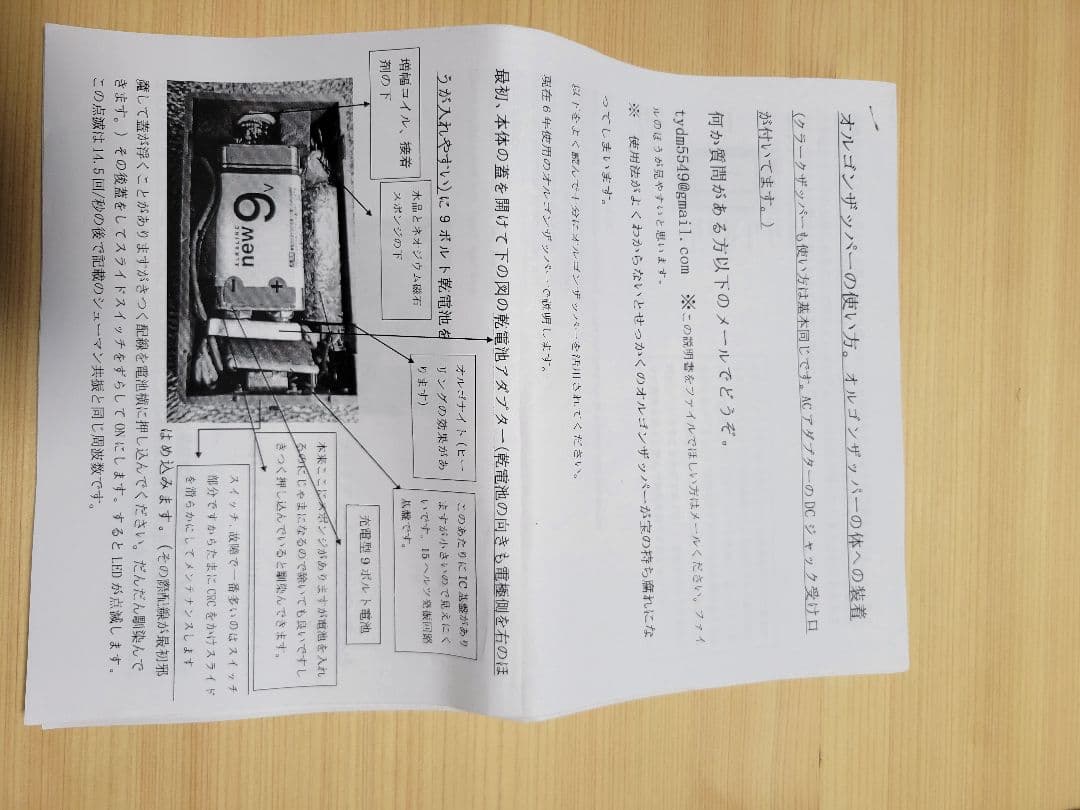 オルゴンザッパーの使い方。オルゴンザッパーの体への装着
(クラークザッパーも使い方は基本同じです。ACアダプターのDCジャック受け口
が付いてます。)
何か質問がある方以下のメールでどうぞ。
tydm5549@gmail.com ※この説明書をファイルでほしい方はメールください。ファイ
ルのほうが見やすいと思います。
※ 使用法がよくわからないとせっかくのオルゴンザッパーが宝の持ち腐れにな
ってしまいます。
以下をよく読んで十分にオルゴンザッパーを活用されてください。
現在6年使用のオルゴンザッパーで説明します。
最初、本体の蓋を開けて下の図の乾電池アダプター(乾電池の向きも電極側を右のほ
うが入れやすい)に9ボルト乾電池を
はめ込みます。(その際配線が最初邪
魔して蓋が浮くことがありますがきつく配線を電池横に押し込んでください。だんだん馴染んで
きます。)その後蓋をしてスライドスイッチをずらしてONにします。するとLEDが点滅します。
この点滅は14.5回/秒の後で記載のシューマン共振と同じ周波数です。
増幅コイル、接着
剤の下
水晶とネオジウム磁石
スポンジの下
オルゴナイト(ヒー
リングの効果があ
ります)
このあたりにIC基盤があり
ますが小さいので見えにく
いです。15ヘルツ発振回路
基盤です。
充電型9ボルト電池
本来ここにスポンジがありますが電池を入れ
るのにじゃまになるので除いても良いですし
きつく押し込んでいると馴染んできます。
スイッチ、故障で一番多いのはスイッチ
部分ですからたまにCRCをかけスライド
を滑らかにしてメンテナンスします
new9V
− +